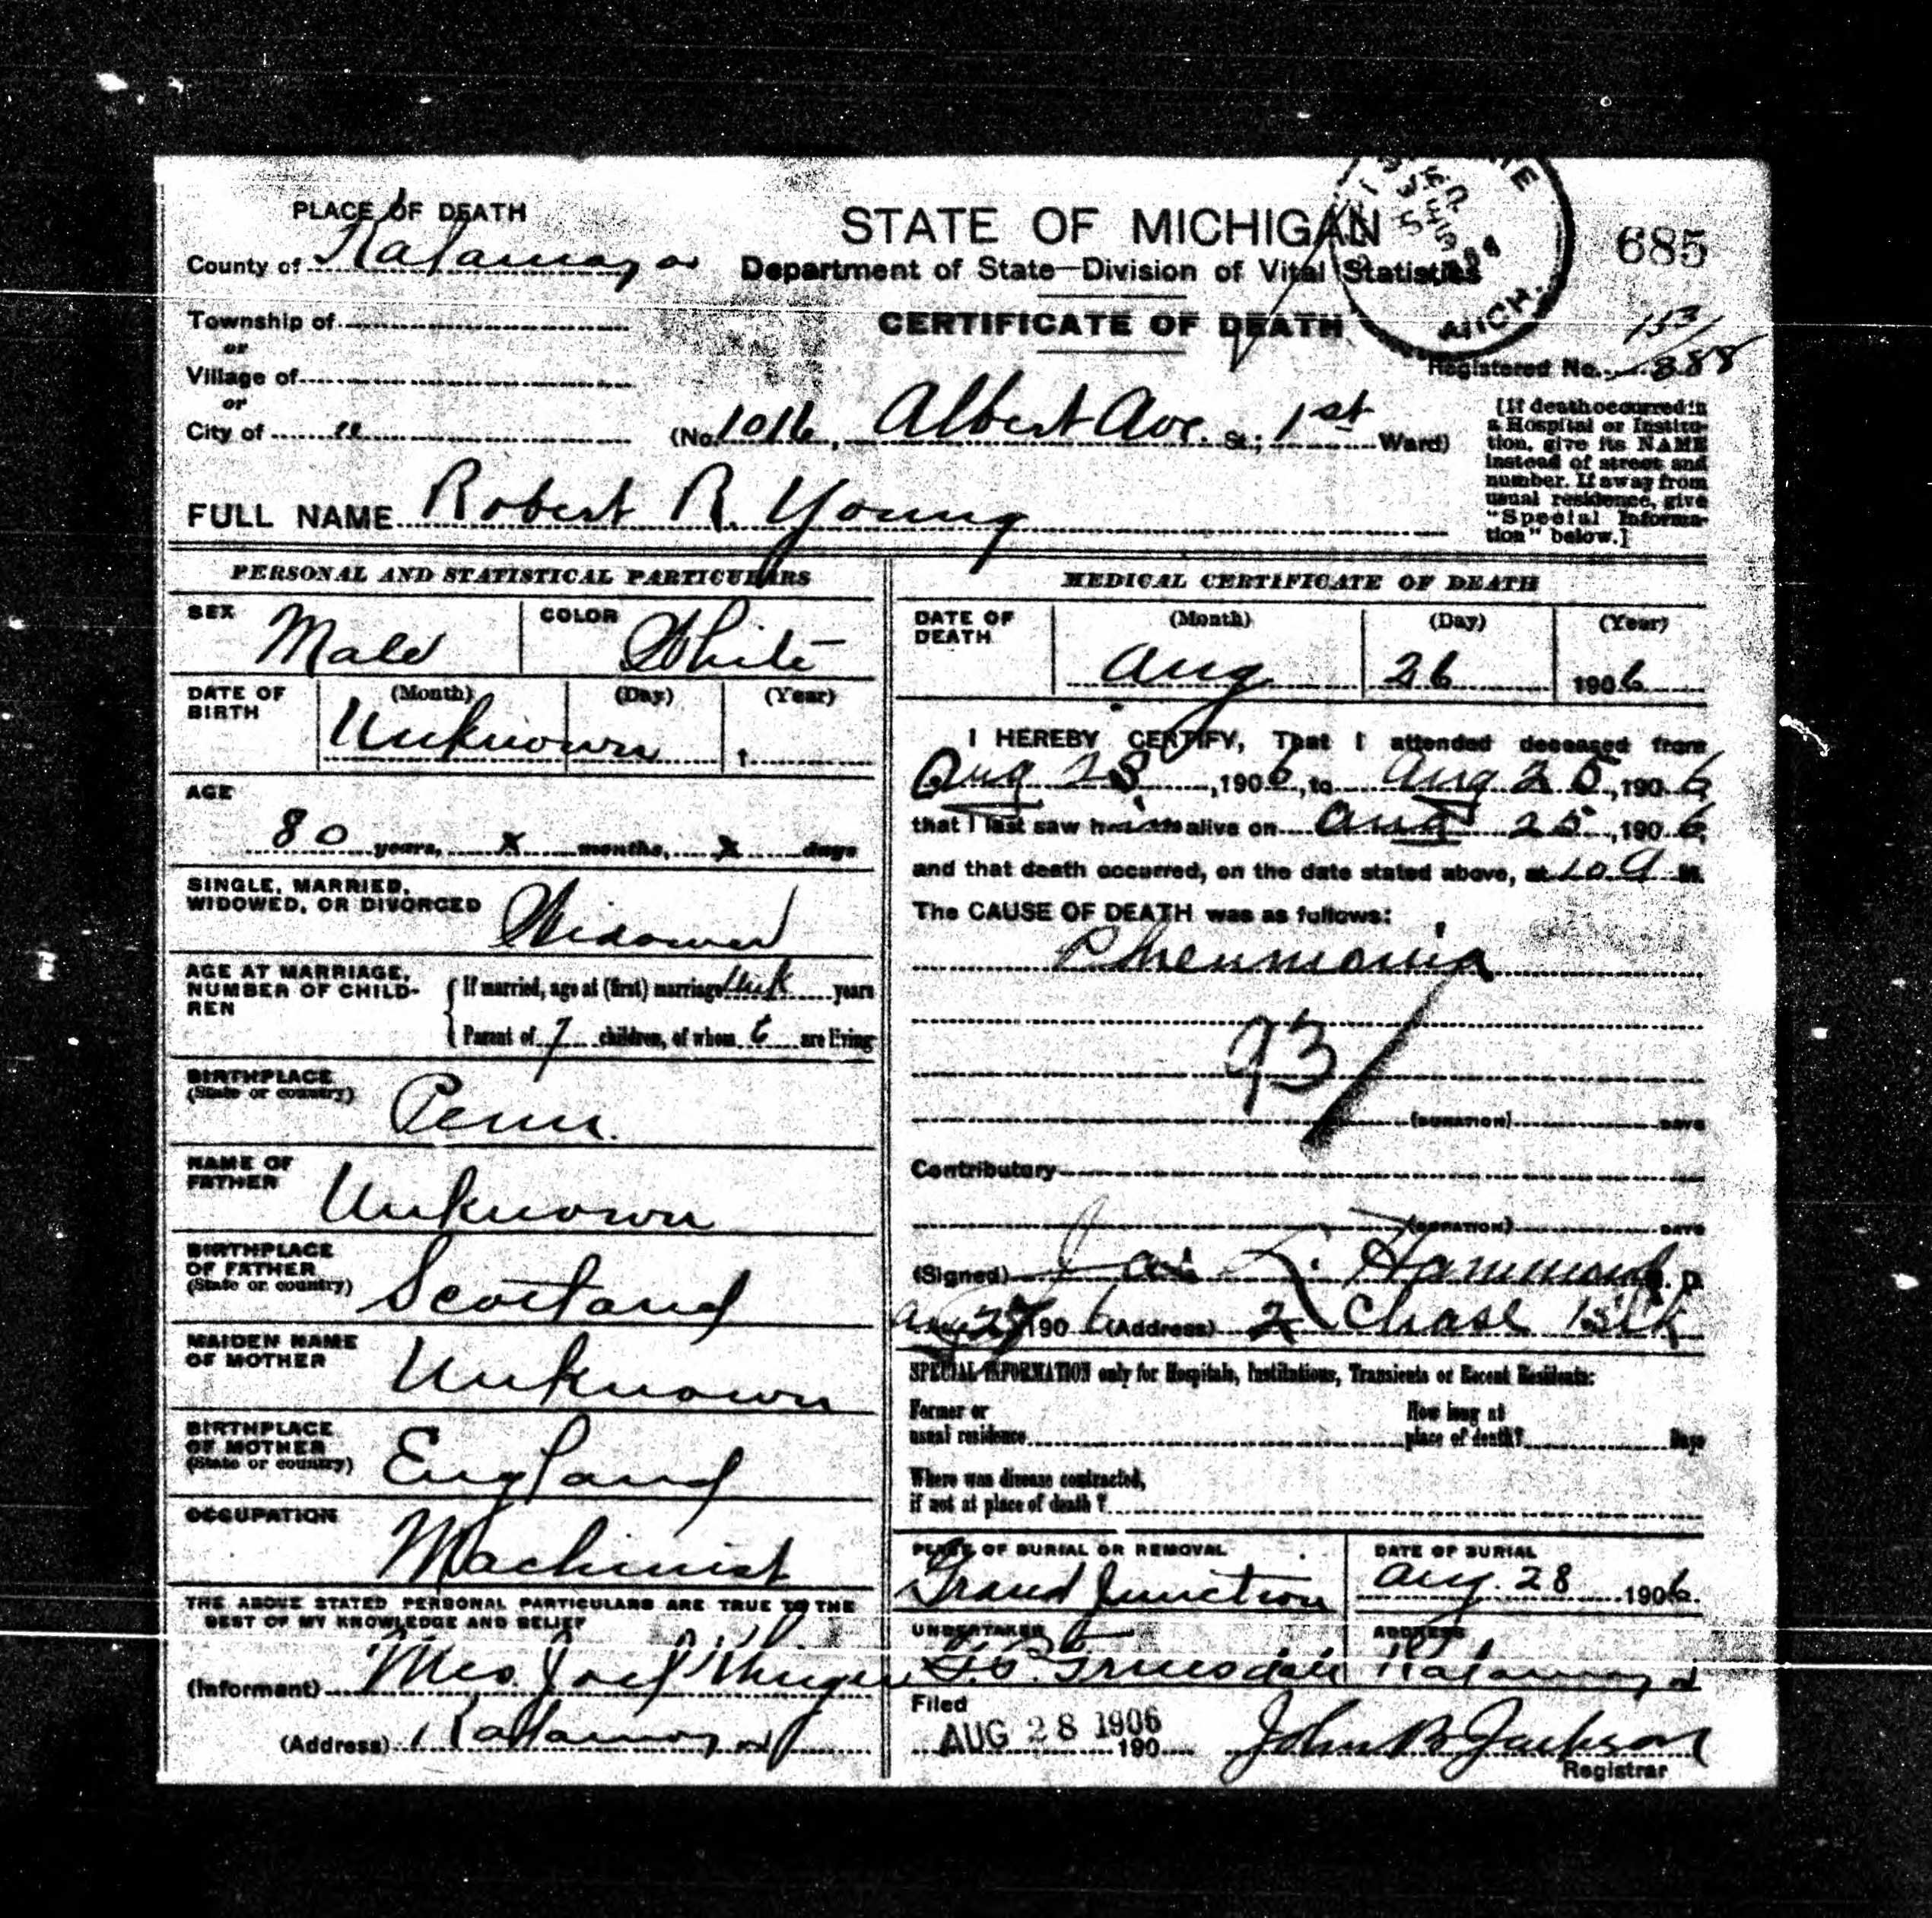 PLACE OF DEATH
County of Kalamazoo
Township of
or
Village of
or
City of "
STATE OF MICHIGAN
Department of State—Division of Vital Statistics
CERTIFICATE OF DEATH
MICH.
685
153/
Registered No. 388
(No. 1016, Albert Ave. St.; 1st Ward)
[If death occurred in
a Hospital or Institu-
tion, give its NAME
instead of street and
number. If away from
usual residence, give
"Special Informa-
tion" below.]
FULL NAME Robert R. Young
PERSONAL AND STATISTICAL PARTICULARS
SEX Male COLOR White
DATE OF BIRTH (Month) (Day) (Year)
Unknown
AGE
80 years, x months, x days
SINGLE, MARRIED,
WIDOWED, OR DIVORCED Widowed
AGE AT MARRIAGE,
NUMBER OF CHILD-
REN
If married, age at (first) marriage Unk years
Parent of 7 children, of whom 6 are living
BIRTHPLACE
(State or country) Penn.
NAME OF
FATHER Unknown
BIRTHPLACE
OF FATHER
(State or country) Scotland
MAIDEN NAME
OF MOTHER Unknown
BIRTHPLACE
OF MOTHER
(State or country) England
OCCUPATION
Machinist
THE ABOVE STATED PERSONAL PARTICULARS ARE TRUE TO THE
BEST OF MY KNOWLEDGE AND BELIEF
(Informant) Mrs. Joel
(Address) Kalamazoo
MEDICAL CERTIFICATE OF DEATH
DATE OF
DEATH
(Month) (Day) (Year)
Aug 26 1906
I HEREBY CERTIFY, That I attended deceased from
Aug 25, 1906, to Aug 25, 1906
that I last saw him alive on Aug 25, 1906
and that death occurred, on the date stated above, at 10 a M.
The CAUSE OF DEATH was as follows:
Pneumonia
93
(DURATION) DAYS
Contributory
(DURATION) DAYS
(Signed) Jas L. Hammond M. D.
Aug 27 1906 (Address) 2 Chase Blk
SPECIAL INFORMATION only for Hospitals, Institutions, Transients or Recent Residents:
Former or
usual residence
How long at
place of death? Days
Where was disease contracted,
if not at place of death?
PLACE OF BURIAL OR REMOVAL
Grand Junction
DATE OF BURIAL
Aug. 28 1906
UNDERTAKER
Truesdale
ADDRESS
Kalamazoo
Filed
AUG 28 1906
190 John B Jackson
Registrar